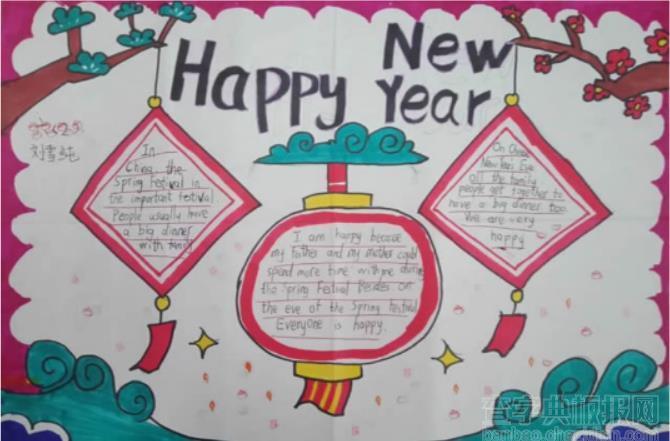 Happy
New
Year
刘雪纯
In
China the
Spring Festival in
the important festival.
People usually have
a big dinner
with
I am happy because
my father and my mother could
spend more time with me during
the Spring Festival Besides on
the eve of the Spring Festival
Everyone is happy.
On
New Year Eve
all the family
people get together to
have a big dinner too
We are very
happy